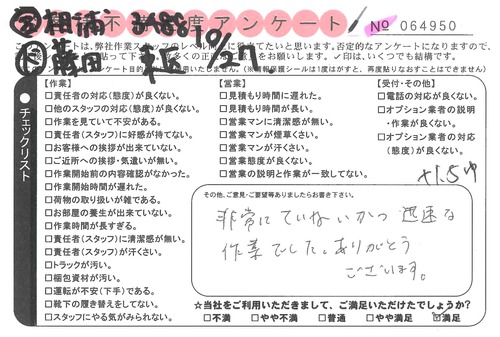 不満足度アンケート
№ 064950
10/27
このアンケートは、弊社作業スタッフのレベル向上に役立てたいと思います。否定的なアンケートになりますので、
✓印は、いくつでも結構です。
(※情報保護シールは1度はがすと、再度貼りなおすことはできません)
チェックリスト
【作業】
□責任者の対応(態度)が良くない。
□他のスタッフの対応(態度)が良くない。
□作業を見ていて不安がある。
□責任者(スタッフ)に好感が持てない。
□お客様への挨拶が出来ていない。
□ご近所への挨拶・気遣いが無い。
□作業開始前の内容確認がなかった。
□作業開始時間が遅れた。
□荷物の取り扱いが雑である。
□お部屋の養生が出来ていない。
□作業時間が長すぎる。
□責任者(スタッフ)に清潔感が無い。
□責任者(スタッフ)が汗くさい。
□トラックが汚い。
□梱包資材が汚い。
□運転が不安(下手)である。
□靴下の履き替えをしてない。
□スタッフにやる気がみられない。
【営業】
□見積もり時間に遅れた。
□見積もり時間が長い。
□営業マンに清潔感が無い。
□営業マンが煙草くさい。
□営業マンが汗くさい。
□営業態度が良くない。
□営業の説明と作業が一致してない。
【受付・その他】
□電話の対応が良くない。
□オプション業者の説明
・作業が良くない。
□オプション業者の対応
(態度)が良くない。
その他、ご意見・ご要望等ありましたらお書き下さい。
非常にていねいかつ迅速な
作業でした。ありがとう
ございます。
☆当社をご利用いただきまして、ご満足いただけたでしょうか?
□不満 □やや不満 □普通 □やや満足 ☑満足